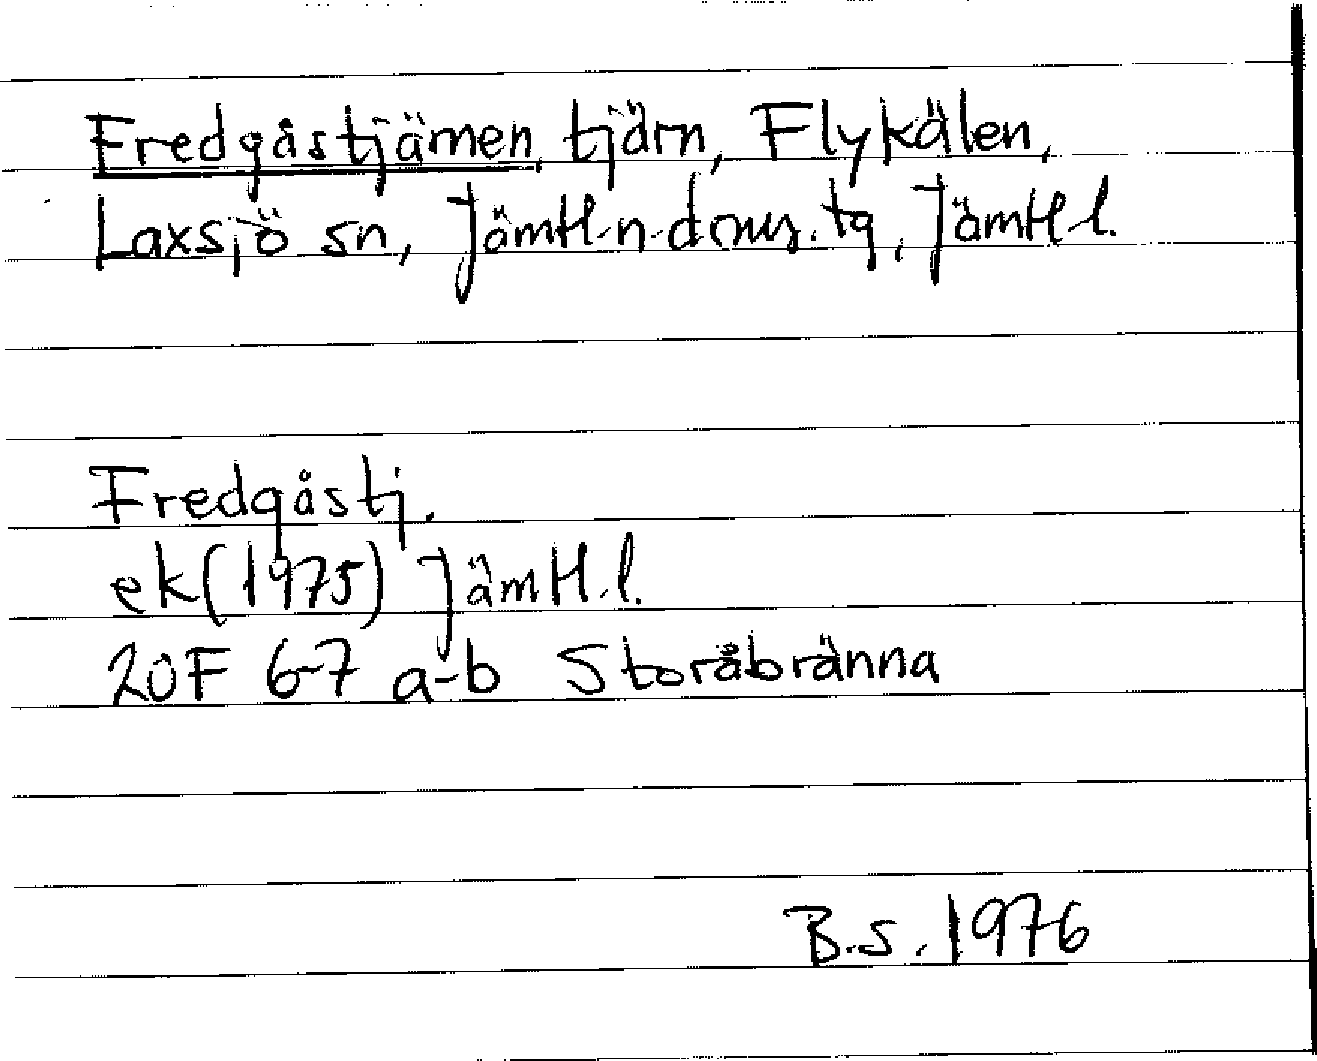 Fredgåstjärnen, tjärn, Flykälen,
Laxsjö sn, Jämtl. n. doms. tg, Jämtl. l.
Fredgåstj.
ek(1975) Jämtl. l.
20F 6-7 a-b Storåbränna
B.S. 1976